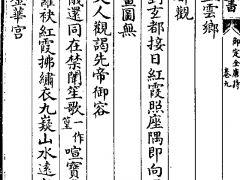 書
御定全唐詩
卷九
雲鄉
觀
到玄都接日紅霞照座隅即向
畫圖無
丈人觀謁先帝御容
儀還同在禁闈笙歌一作篁喧寶
羅袂紅霞拂繡衣九嶷山水遠
華宮